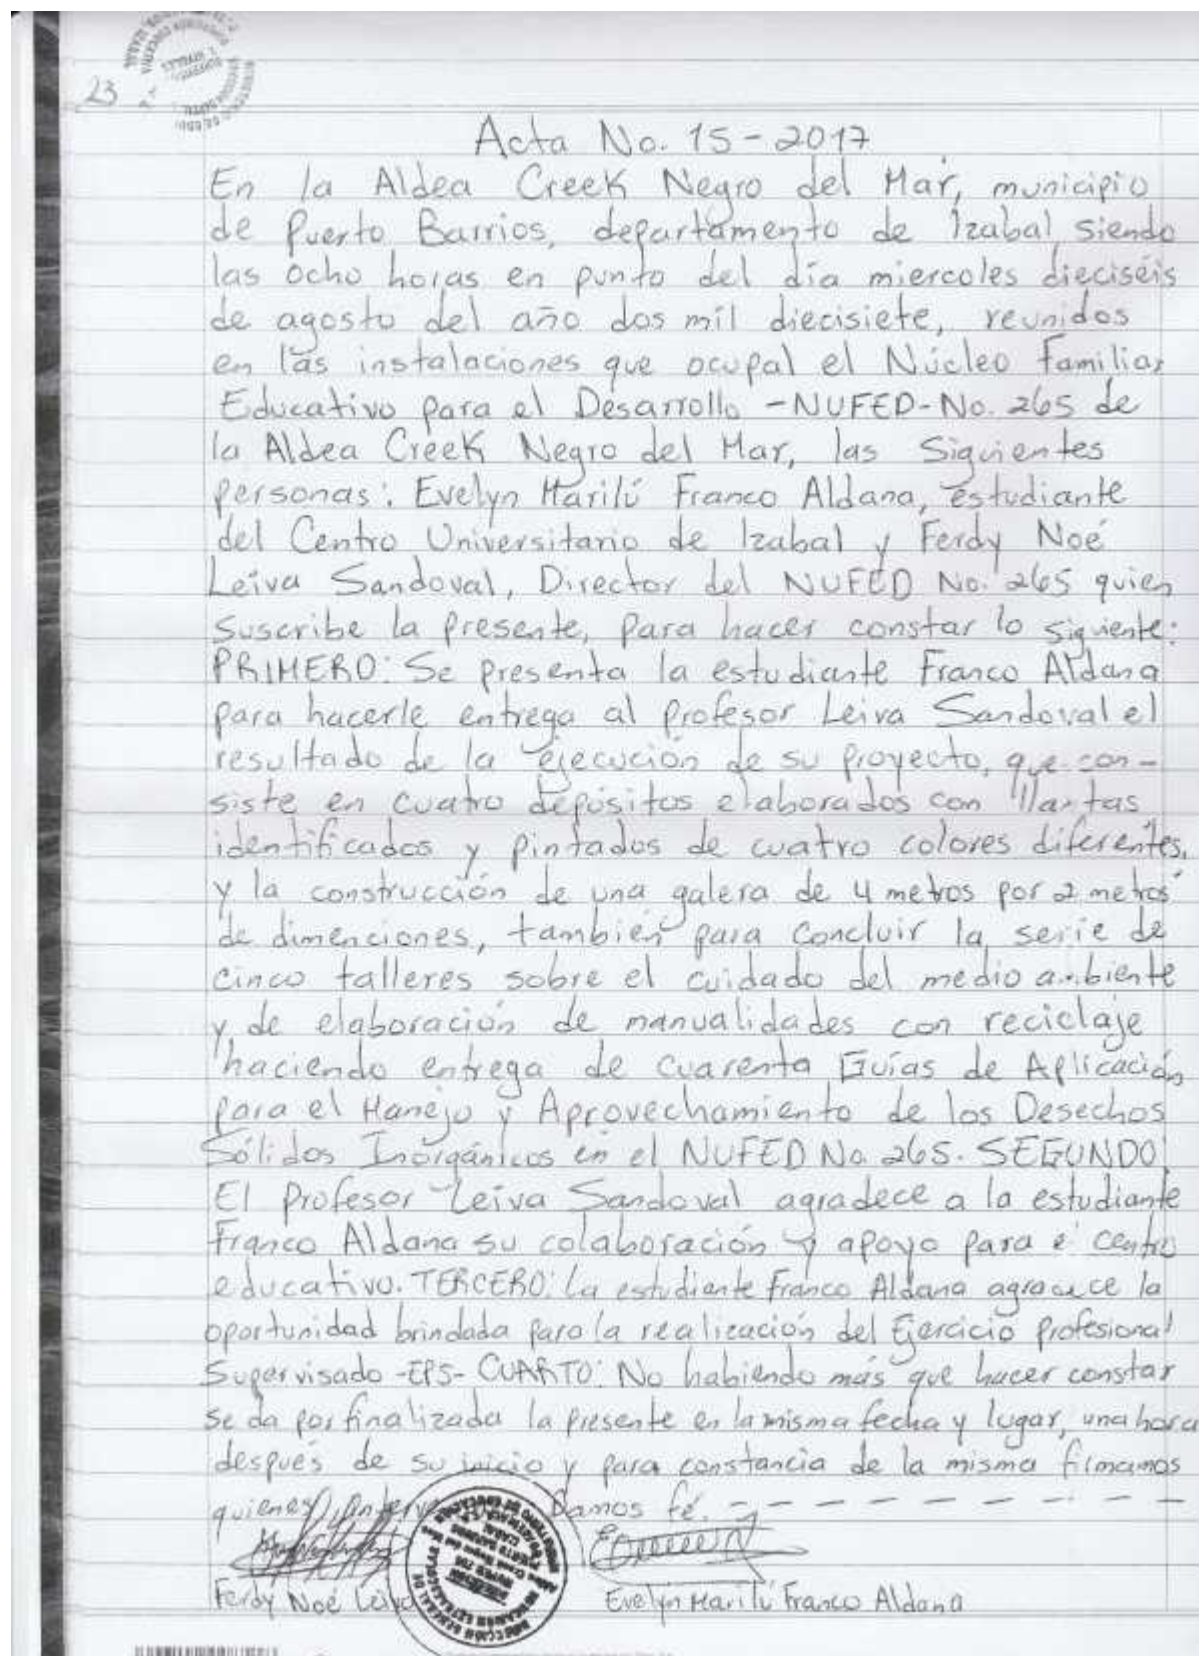 23
Acta No. 15-2017
En la Aldea Creek Negro del Mar, municipio
de Puerto Barrios, departamento de Izabal, siendo
las ocho horas en punto del día miercoles dieciséis
de agosto del año dos mil diecisiete, reunidos
en las instalaciones que ocupal el Núcleo Familiar
Educativo para el Desarrollo -NUFED- No. 265 de
la Aldea Creek Negro del Mar, las siguientes
personas: Evelyn Marilú Franco Aldana, estudiante
del Centro Universitario de Izabal y Ferdy Noé
Leiva Sandoval, Director del NUFED No. 265 quien
suscribe la presente, para hacer constar lo siguiente:
PRIMERO: Se presenta la estudiante Franco Aldana
para hacerle entrega al profesor Leiva Sandoval el
resultado de la ejecución de su proyecto, que con-
siste en cuatro depósitos elaborados con llantas
identificados y pintados de cuatro colores diferentes,
y la construcción de una galera de 4 metros por 2 metros
de dimenciones, también para concluir la serie de
cinco talleres sobre el cuidado del medio ambiente
y de elaboración de manualidades con reciclaje
haciendo entrega de cuarenta Guías de Aplicación
para el Manejo y Aprovechamiento de los Desechos
Sólidos Inorgánicos en el NUFED No. 265. SEGUNDO:
El profesor Leiva Sandoval agradece a la estudiante
Franco Aldana su colaboración y apoyo para e centro
educativo. TERCERO: La estudiante Franco Aldana agradece la
oportunidad brindada para la realización del Ejercicio Profesional
Supervisado -EPS- CUARTO: No habiendo más que hacer constar
se da por finalizada la presente en la misma fecha y lugar, una hora
después de su inicio y para constancia de la misma firmamos
quienes Damos fé. - - - - - - - - - -
Ferdy Noé Leiva
Evelyn Marilú Franco Aldana